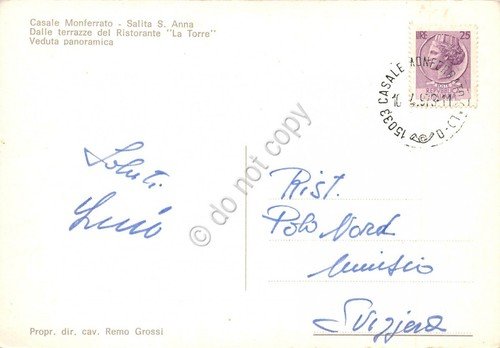 Casale Monferrato - Salita S. Anna
Dalle terrazze del Ristorante "La Torre"
Veduta panoramica
LIRE 25
15033 CASALE MONF
Saluti
Rist.
Polo Nord
Svizzera
Propr. dir. cav. Remo Grossi
© do not copy